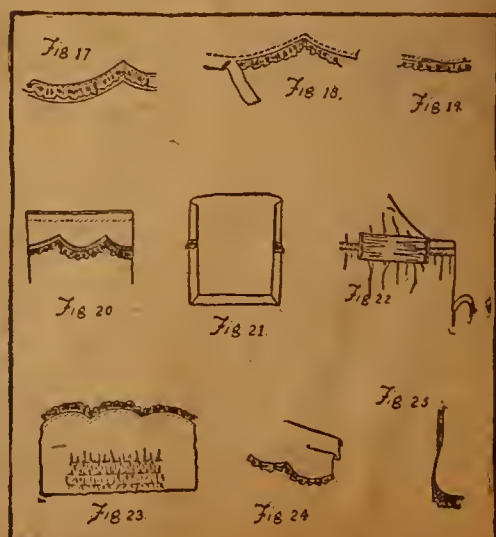 Fig 17
Fig 18.
Fig 19.
Fig 20
Fig 21.
Fig 22
Fig 23.
Fig 24
Fig 25